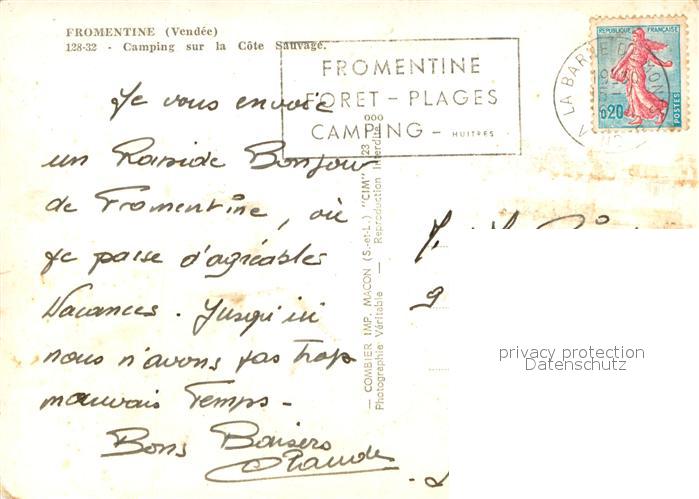 FROMENTINE (Vendée)
128-32 - Camping sur la Côte Sauvage.
FROMENTINE
FORET - PLAGES
ooo
CAMPING - HUITRES
LA BARRE DE MONTS
REPUBLIQUE FRANÇAISE
0,20
POSTES
Je vous envoie
un Rapide Bonjour
de Fromentine, où
je passe d'agréables
Vacances. Jusqu'ici
nous n'avons pas trop
mauvais Temps-
Bons Baisers
Claude
— COMBIER IMP. MACON (S.-et-L.) "CIM"
Photographie Véritable — Reproduction Interdite
privacy protection
Datenschutz